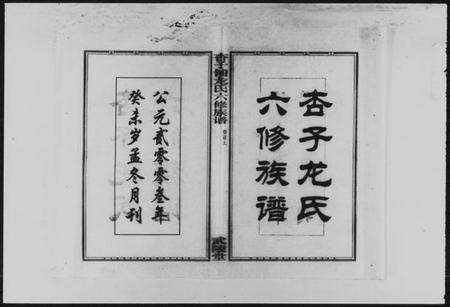 杏子龙氏
六修族谱
杏子铺龙氏六修族谱
卷首上
武陵堂
公元贰零零叁年
癸未岁孟冬月刊